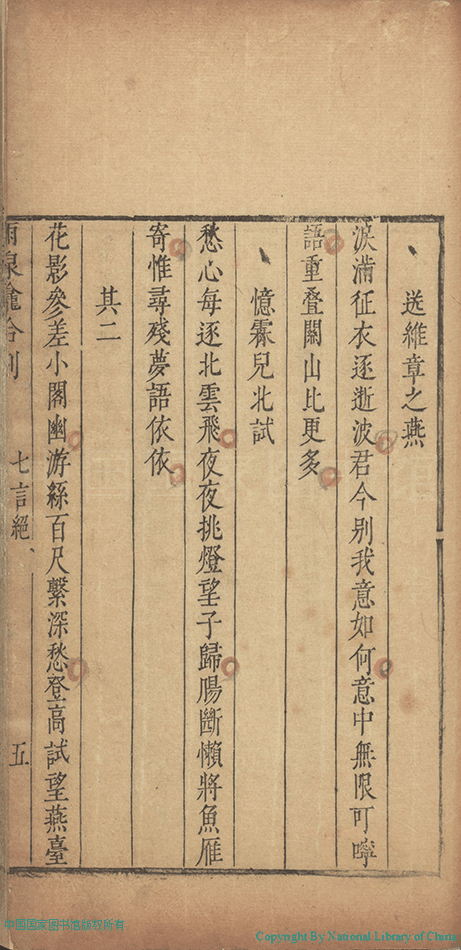 送維章之燕
淚滿征衣逐逝波君今别我意如何意中無限叮嚀
語重疊關山比更多
憶霖兒北試
愁心每逐北雲飛夜夜挑燈望子歸腸斷懶將魚雁
寄惟尋殘夢語依依
其二
花影參差小閣幽游絲百尺繫深愁登高試望燕臺
七言絕
五
中国国家图书馆版权所有
Copyright By National Library of China